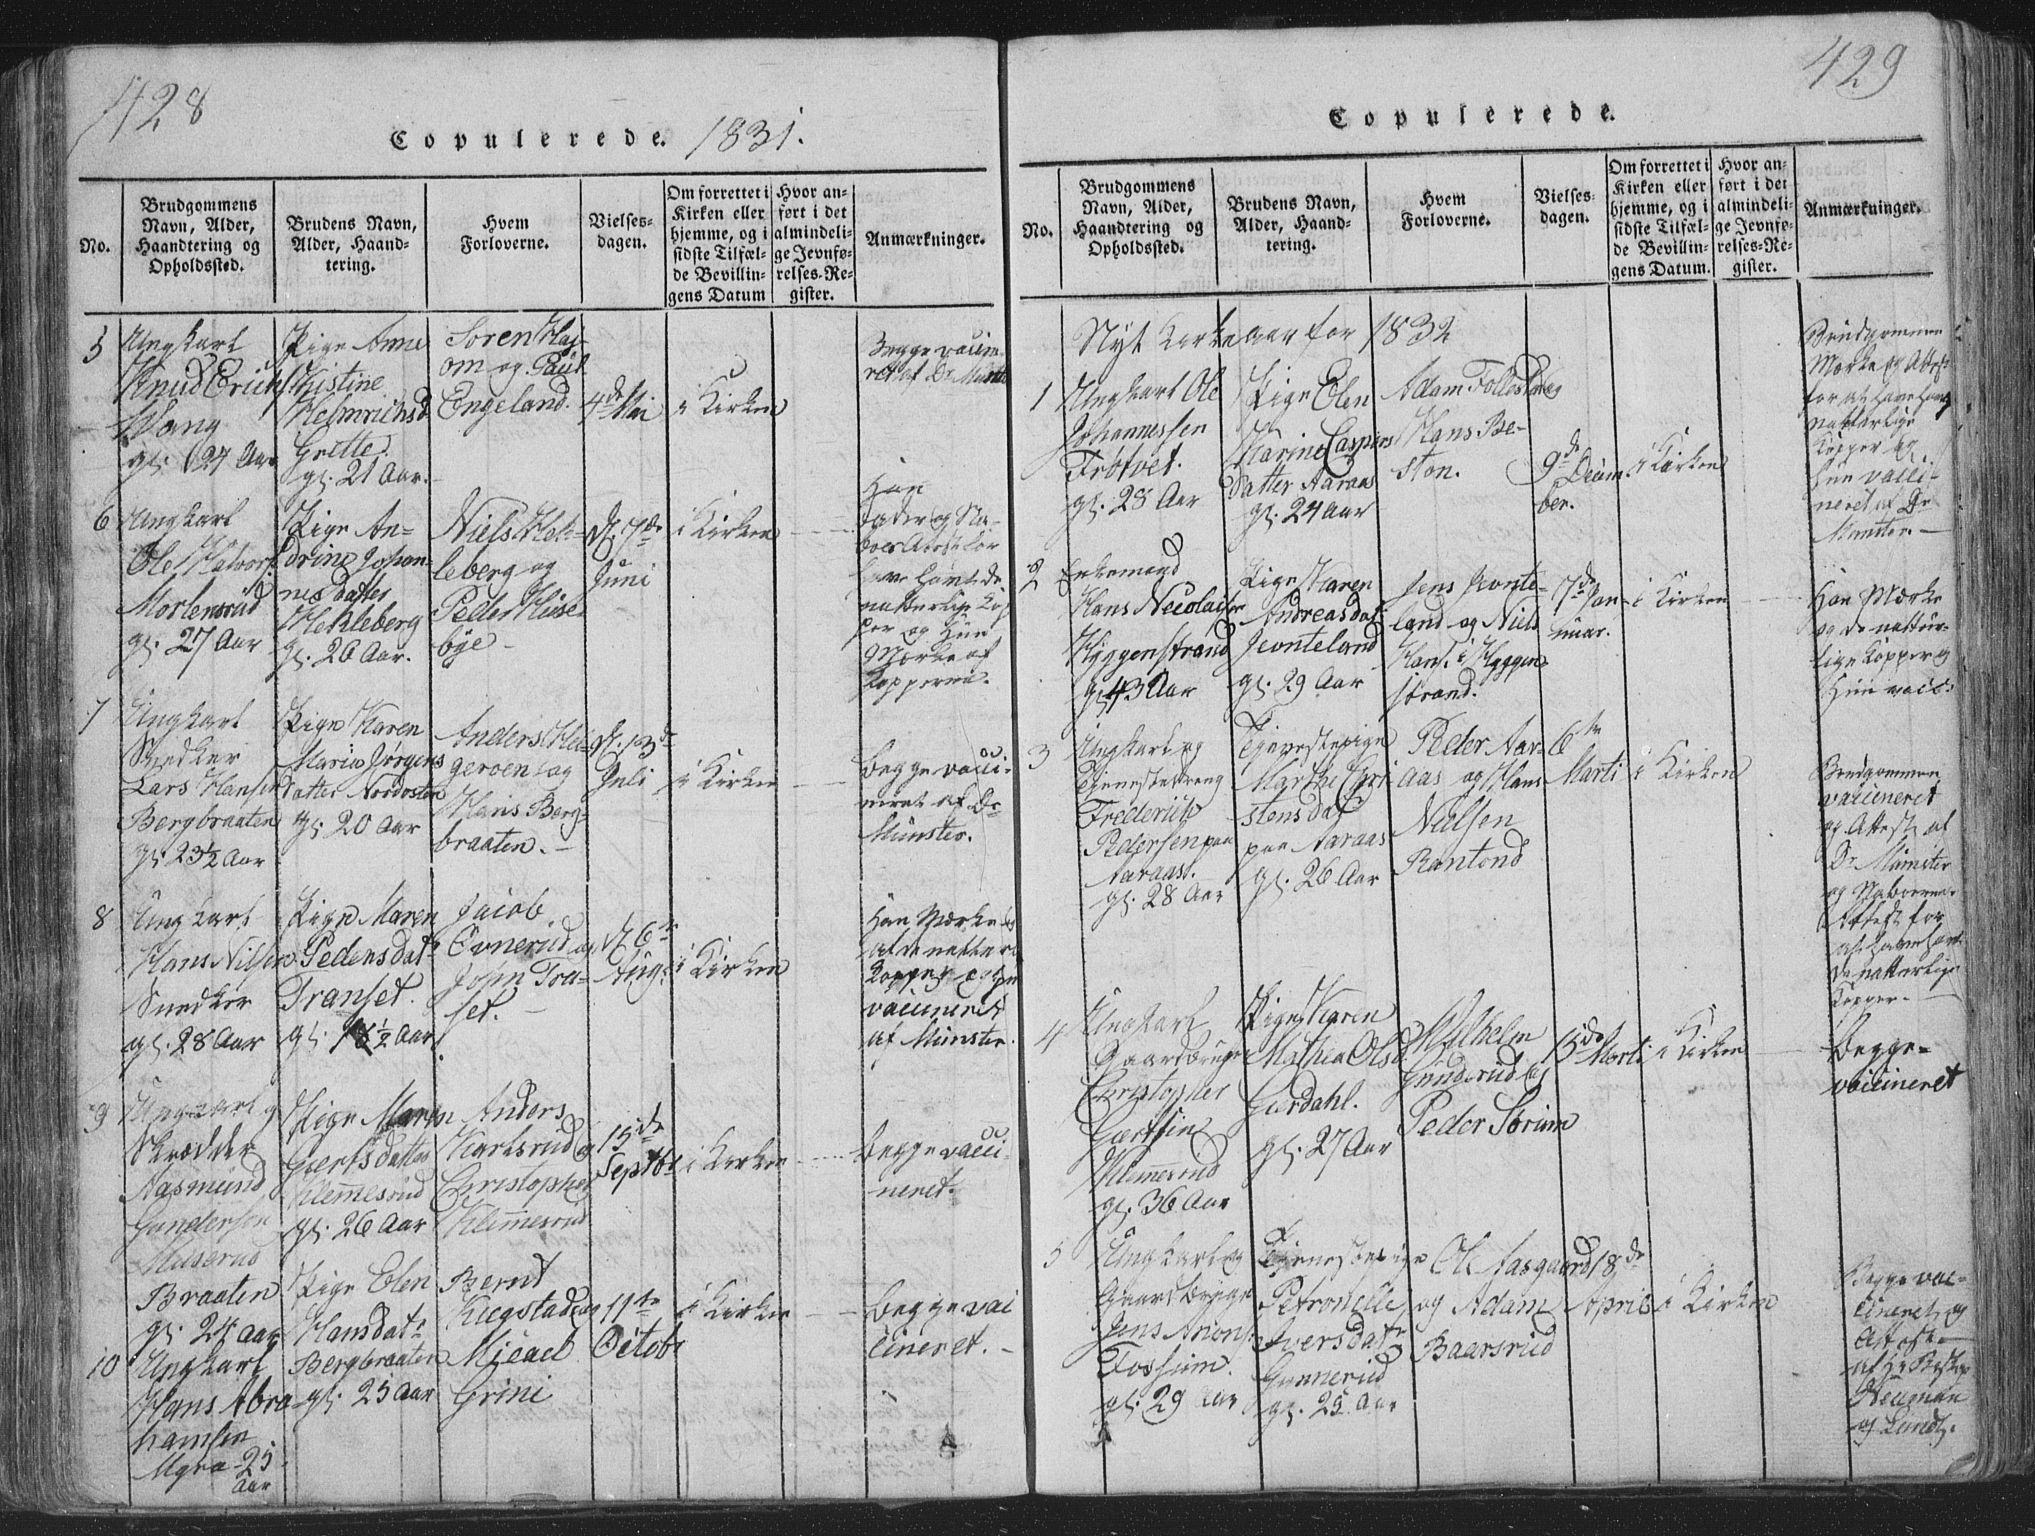 428
Copulerede. 1831.
No.
Brudgommens Navn, Alder, Haandtering og Opholdssted.
Brudens Navn, Alder, Haandtering.
Hvem Forloverne.
Vielsesdagen.
Om forrettet i Kirken eller hjemme, og i sidste Tilfælde Bevillingens Datum
Hvor anført i det almindelige Jevnførelses-Register.
Anmærkninger.
5
Ungkarl
Knud Erichs
Wang
gl. 27 Aar
Pige Anne
Kistine
Helmrichsd
Grette.
gl. 21 Aar.
Soren
om og Paul
Engeland.
4de Mai
i Kirken
Begge vacci-
ret af Dr Munster
6
Ungkarl
Ole Halvors
Mortensrud
gl. 27 Aar
Pige An-
drine Johan-
nesdatter
Hekleberg
gl. 26 Aar.
Niels Hek-
leberg og
Peder Huse-
bye
d. 7de
Juni
i Kirken
Han
have havt de
naturlige Kop-
per og Hun
Mærke af
Kopperne.
7
Ungkarl
Snedker
Lars Hansen
Bergbraaten
gl. 23½ Aar
Pige Karen
Maria Jørgens
datter Nordosten
gl. 20 Aar
Anders Hel-
geroen og
Hans Berg-
braaten.
d. 13de
Juli
i Kirken
Begge vacci-
neret af Dr
Münster.
8
Ungkarl
Hans Nilsen
Snedker
gl. 28 Aar
Pige Maren
Pedersdatr
Transet.
gl. ½ Aar.
Jacob
Evnerud og
John Tra-
set.
d. 6te
Aug.
i Kirken
Han Mærke
af de natterl
Kopper og Hun
vaccineret
af Münster.
9
Ungkarl og
Skrædder
Aasmund
Gundersen
Muserud
Braaten
gl. 24 Aar
Pige Maren
Gjertsdatter
Klemmesrud
gl. 26 Aar
Anders
Karlsrud og
Christopher
Klemmesrud
15de
Septbr
i Kirken
Begge vacci-
neret.
10
Ungkarl
Hans Abra-
hamsen
Myra 25
Aar
Pige Elen
Hansdatr
Bergbraaten
gl. 25 Aar
Bernt
Kiegstad og
Micael
Grini
11te
Octobr
i Kirken
Begge vac
cineret.
429
Copulerede.
No.
Brudgommens Navn, Alder, Haandtering og Opholdssted.
Brudens Navn, Alder, Haandtering.
Hvem Forloverne.
Vielsesdagen.
Om forrettet i Kirken eller hjemme, og i sidste Tilfælde Bevillingens Datum.
Hvor anført i det almindelige Jevnførelses-Register.
Anmærkninger.
Nyt Kirkeaar for 1832
1
Ungkarl Ole
Johannessen
Trötvet.
gl. 28 Aar
Pige Elen
Karine Caspers
datter Aaraas
gl. 24 Aar
Adam Follestad og
Hans Be-
ston.
9de Decem-
ber.
i Kirken
Brudgommen
Mærke og Attest
for at have havt
natterlige
Kopper og
Hun vacci-
neret af Dr
Munster.
2
Enkemand
Hans Nicolaisen
Hyggenstrand
gl. 43 Aar
Pige Karen
Andreasdatr
Jevnteland
gl. 29 Aar
Jens Jevnte-
land og Niels
Hans. i Hyggen
strand.
7de Jan-
nuar.
i Kirken
Han Mærke
og de nattur-
lige Kopper og
Hun vacc.
3
Ungkarl og
Tjenestedreng
Frederich
Pedersen paa
Aaraas.
gl. 28 Aar
Tjenestepige
Marthe Chri
stensdatr
paa Aaraas
gl. 26 Aar
Peder Aar-
aas og Hans
Nielsen
Rontond
6te
Marti
i Kirken
Brudgommen
vaccineret
og Attest af
Dr Münster
og Naboernes
Attest for
at have havt
de natterlige
Kopper.
4
Ungkarl
Gaardbruger
Christopher
Gjertsen
Klemmesrud
gl. 36 Aar
Pige Karen
Mathea Olsd.
Gurdahl.
gl. 27 Aar
Wilhelm
Gunderud og
Peder Sörium
13de Marti
i Kirken
Begge
vaccineret
5
Ungkarl og
Gaardbruger
Jens Arions.
Fossum.
gl. 29 Aar
Tjenestepige
Petronelle
Iversdatr
Gunnerud
gl. 25 Aar
Ole Aasgaard
og Adam
Baarsrud
18de
April
i Kirken
Begge vac-
cineret og
Attest
af Hr Bisko
Neuman
og Lundh.